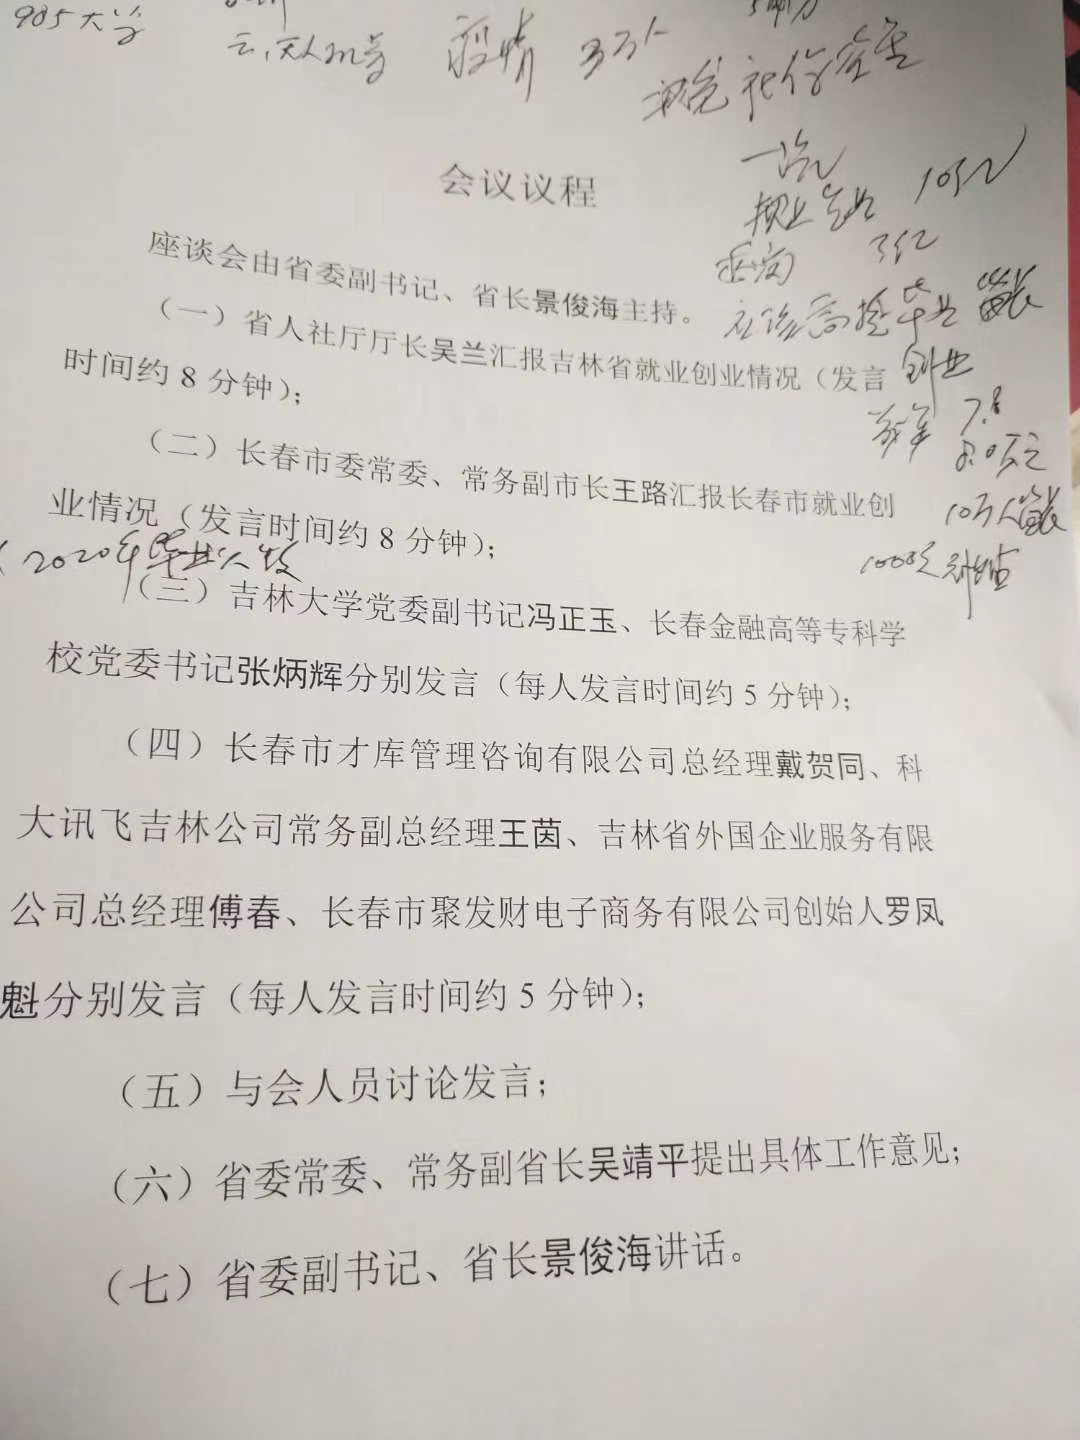 985大学
疫情 3万人
会议议程
一汽
10亿
3亿
座谈会由省委副书记、省长景俊海主持。
（一）省人社厅厅长吴兰汇报吉林省就业创业情况（发言
创业
时间约 8 分钟）；
7.8
8.0万元
（二）长春市委常委、常务副市长王路汇报长春市就业创
10万人留长
业情况（发言时间约 8 分钟）；
（2020年毕业人数
（三）吉林大学党委副书记冯正玉、长春金融高等专科学
校党委书记张炳辉分别发言（每人发言时间约 5 分钟）；
（四）长春市才库管理咨询有限公司总经理戴贺同、科
大讯飞吉林公司常务副总经理王茵、吉林省外国企业服务有限
公司总经理傅春、长春市聚发财电子商务有限公司创始人罗凤
魁分别发言（每人发言时间约 5 分钟）；
（五）与会人员讨论发言；
（六）省委常委、常务副省长吴靖平提出具体工作意见；
（七）省委副书记、省长景俊海讲话。